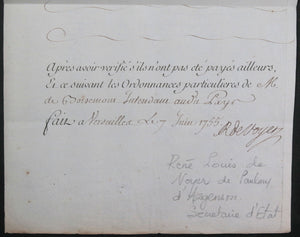 Après avoir verifié s'ils n'ont pas eté payés ailleurs,
Et ce suivant les Ordonnances particulieres de M.
de Intendant audit Pays
fait a Versailles Le 7 Juin 1755.
René Louis de
Voyer de Paulmy
d'Argenson
Secrétaire d'Etat